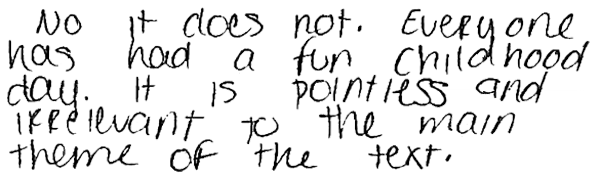 No it does not. Everyone
has had a fun childhood
day. It is pointless and
irrelevant to the main
theme of the text.